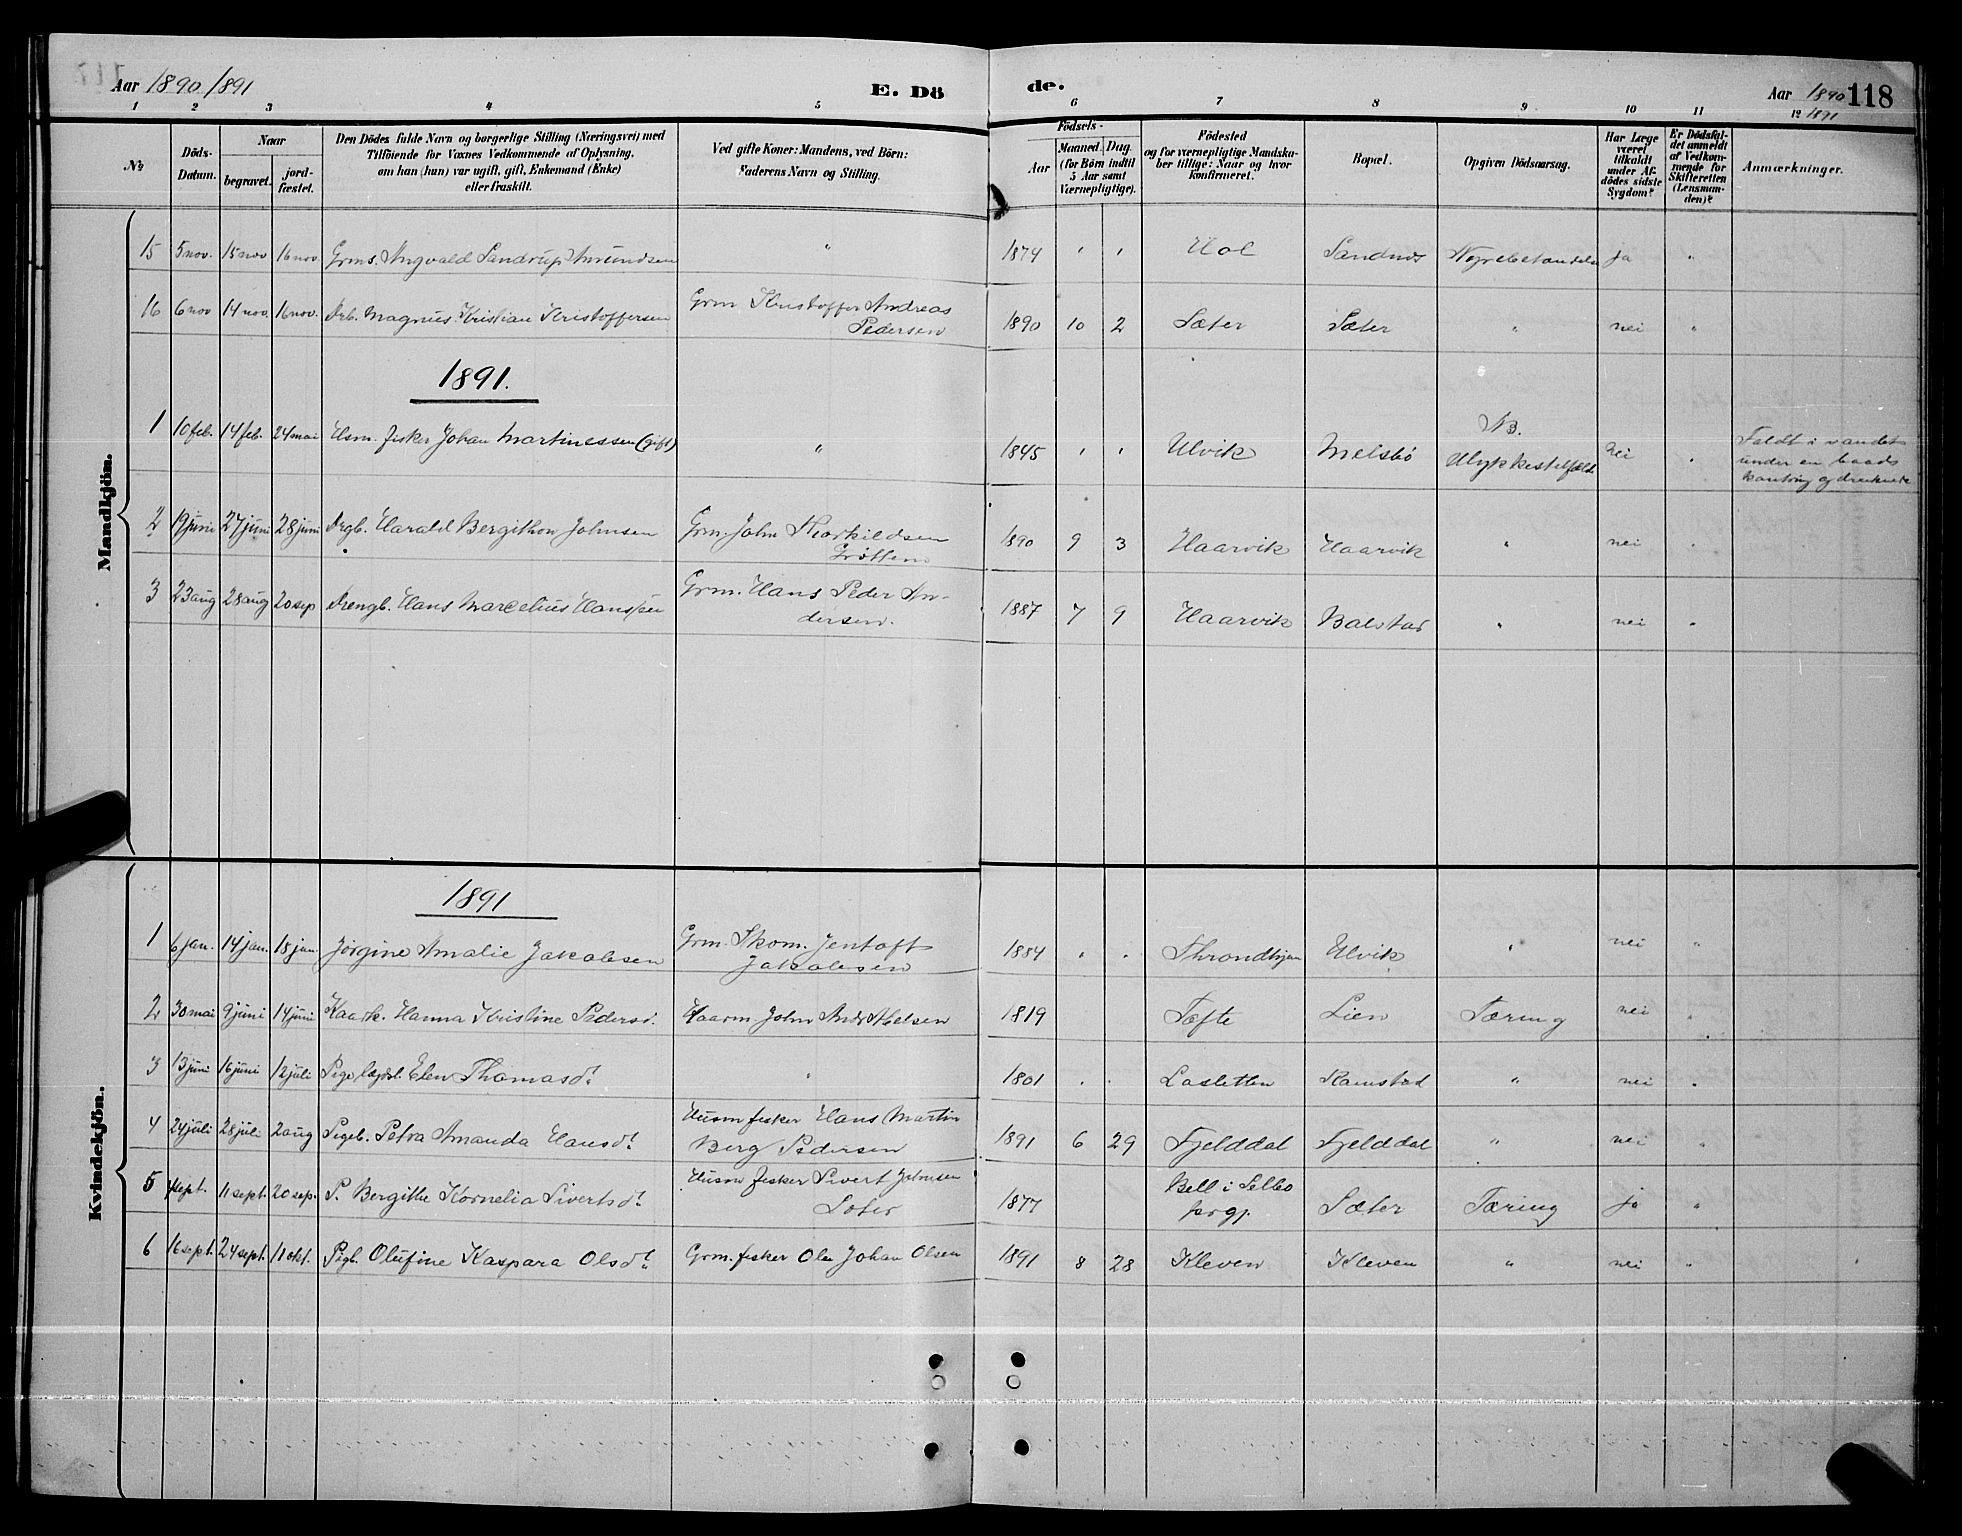 Aar 1890/1891
E. Dö
de.
Aar 1890 118
1891
1 2 3 4 5 6 7 8 9 10 11 12
No
Döds-Datum.
Naar
begravet.
jord-fæstet.
Den Dödes fulde Navn og borgerlige Stilling (Næringsvei) med
Tilföiende for Voxnes Vedkommende af Oplysning,
om han (hun) var ugift, gift, Enkemand (Enke)
eller fraskilt.
Ved gifte Koner: Mandens, ved Börn:
Faderens Navn og Stilling.
Födsels-
Aar
Maaned. Dag.
(for Börn indtil
5 Aar samt
Værnepligtige).
Födested
og for værnepligtige Mandska-
ber tillige: Naar og hvor
konfirmeret.
Bopæl.
Opgiven Dödsaarsag.
Har Læge
været
tilkaldt
under Af-
dödes sidste
Sygdom?
Er Dödsfal-
det anmeldt
af Vedkom-
mende for
Skifteretten
(Lensman-
den)?
Anmærkninger.
Mandkjön.
15 5 nov. 15 nov 16 nov. Grms. Angvald Sandrup Amundsen " 1874 " " Hol Sandnes ja "
16 6 nov 14 nov. 16 nov. Drb. Magnus Kristian Kristoffersen Grm Kristoffer Andreas
Pedersen 1890 10 2 Sæter Sæter " nei "
1891.
1 10 feb. 14 feb. 24 mai Hsm. fisker Johan Martinessen (gift) " 1845 " " Ulvik Melsbö NB.
Ulykkestilfælde nei " Faldt i vandet
under en baads
kantring og druknede
2 19 juni 27 juni 28 juni Drgb. Harald Bergithon Johnsen Grm. John Thorkildsen
Gröttem 1890 9 3 Haarvik Haarvik " nei "
3 23 aug 28 aug 20 sep Drengb. Hans Marcelius Hanssen Grm. Hans Peder An-
dersen. 1887 7 9 Haarvik Balstad " nei "
Kvindekjön.
1891
1 6 jan. 14 jan. 18 jan. Jörgine Amalie Jakobsen Grm. Skom. Jentoft
Jakobsen 1884 " " Throndhjem Ulvik " nei "
2 30 mai 9 juni 14 juni Kaark. Hanna Kristine Pedersd. Kaarm. John Andr Melsen 1819 Tæfte Lien Tæring nei "
3 13 juni 16 juni 12 juli Pige lægdsl. Elen Thomasdt " 1801 " Lasletten Ramstad " nei "
4 24 juli 28 juli 2 aug Pigeb. Petra Amanda Hansdt Husm fisker Hans Martin
Berg Pedersen 1891 6 29 Fjelddal Fjelddal " nei "
5 sept. 11 sept. 20 sep. P. Bergithe Kornelia Sivertsdt Husm fisker Sivert Johnsen
Sæter 1877 Bell i Selbo
prgj. Sæter Tæring ja "
6 16 sept. 24 sept. 11 okt. Pigb. Olufine Kaspara Olsdt. Grm. fisker Ole Johan Olsen 1891 8 28 Kleven Kleven " nei "